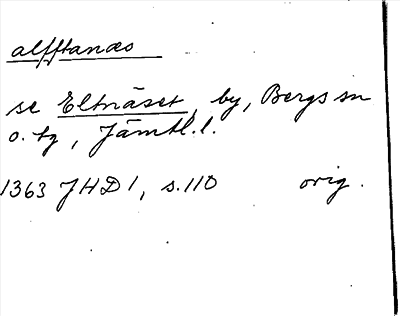 alfftanæs
se Eltnäset, by, Bergs sn
o. tg, Jämtl. l.
1363 JHD 1, s. 110 orig.